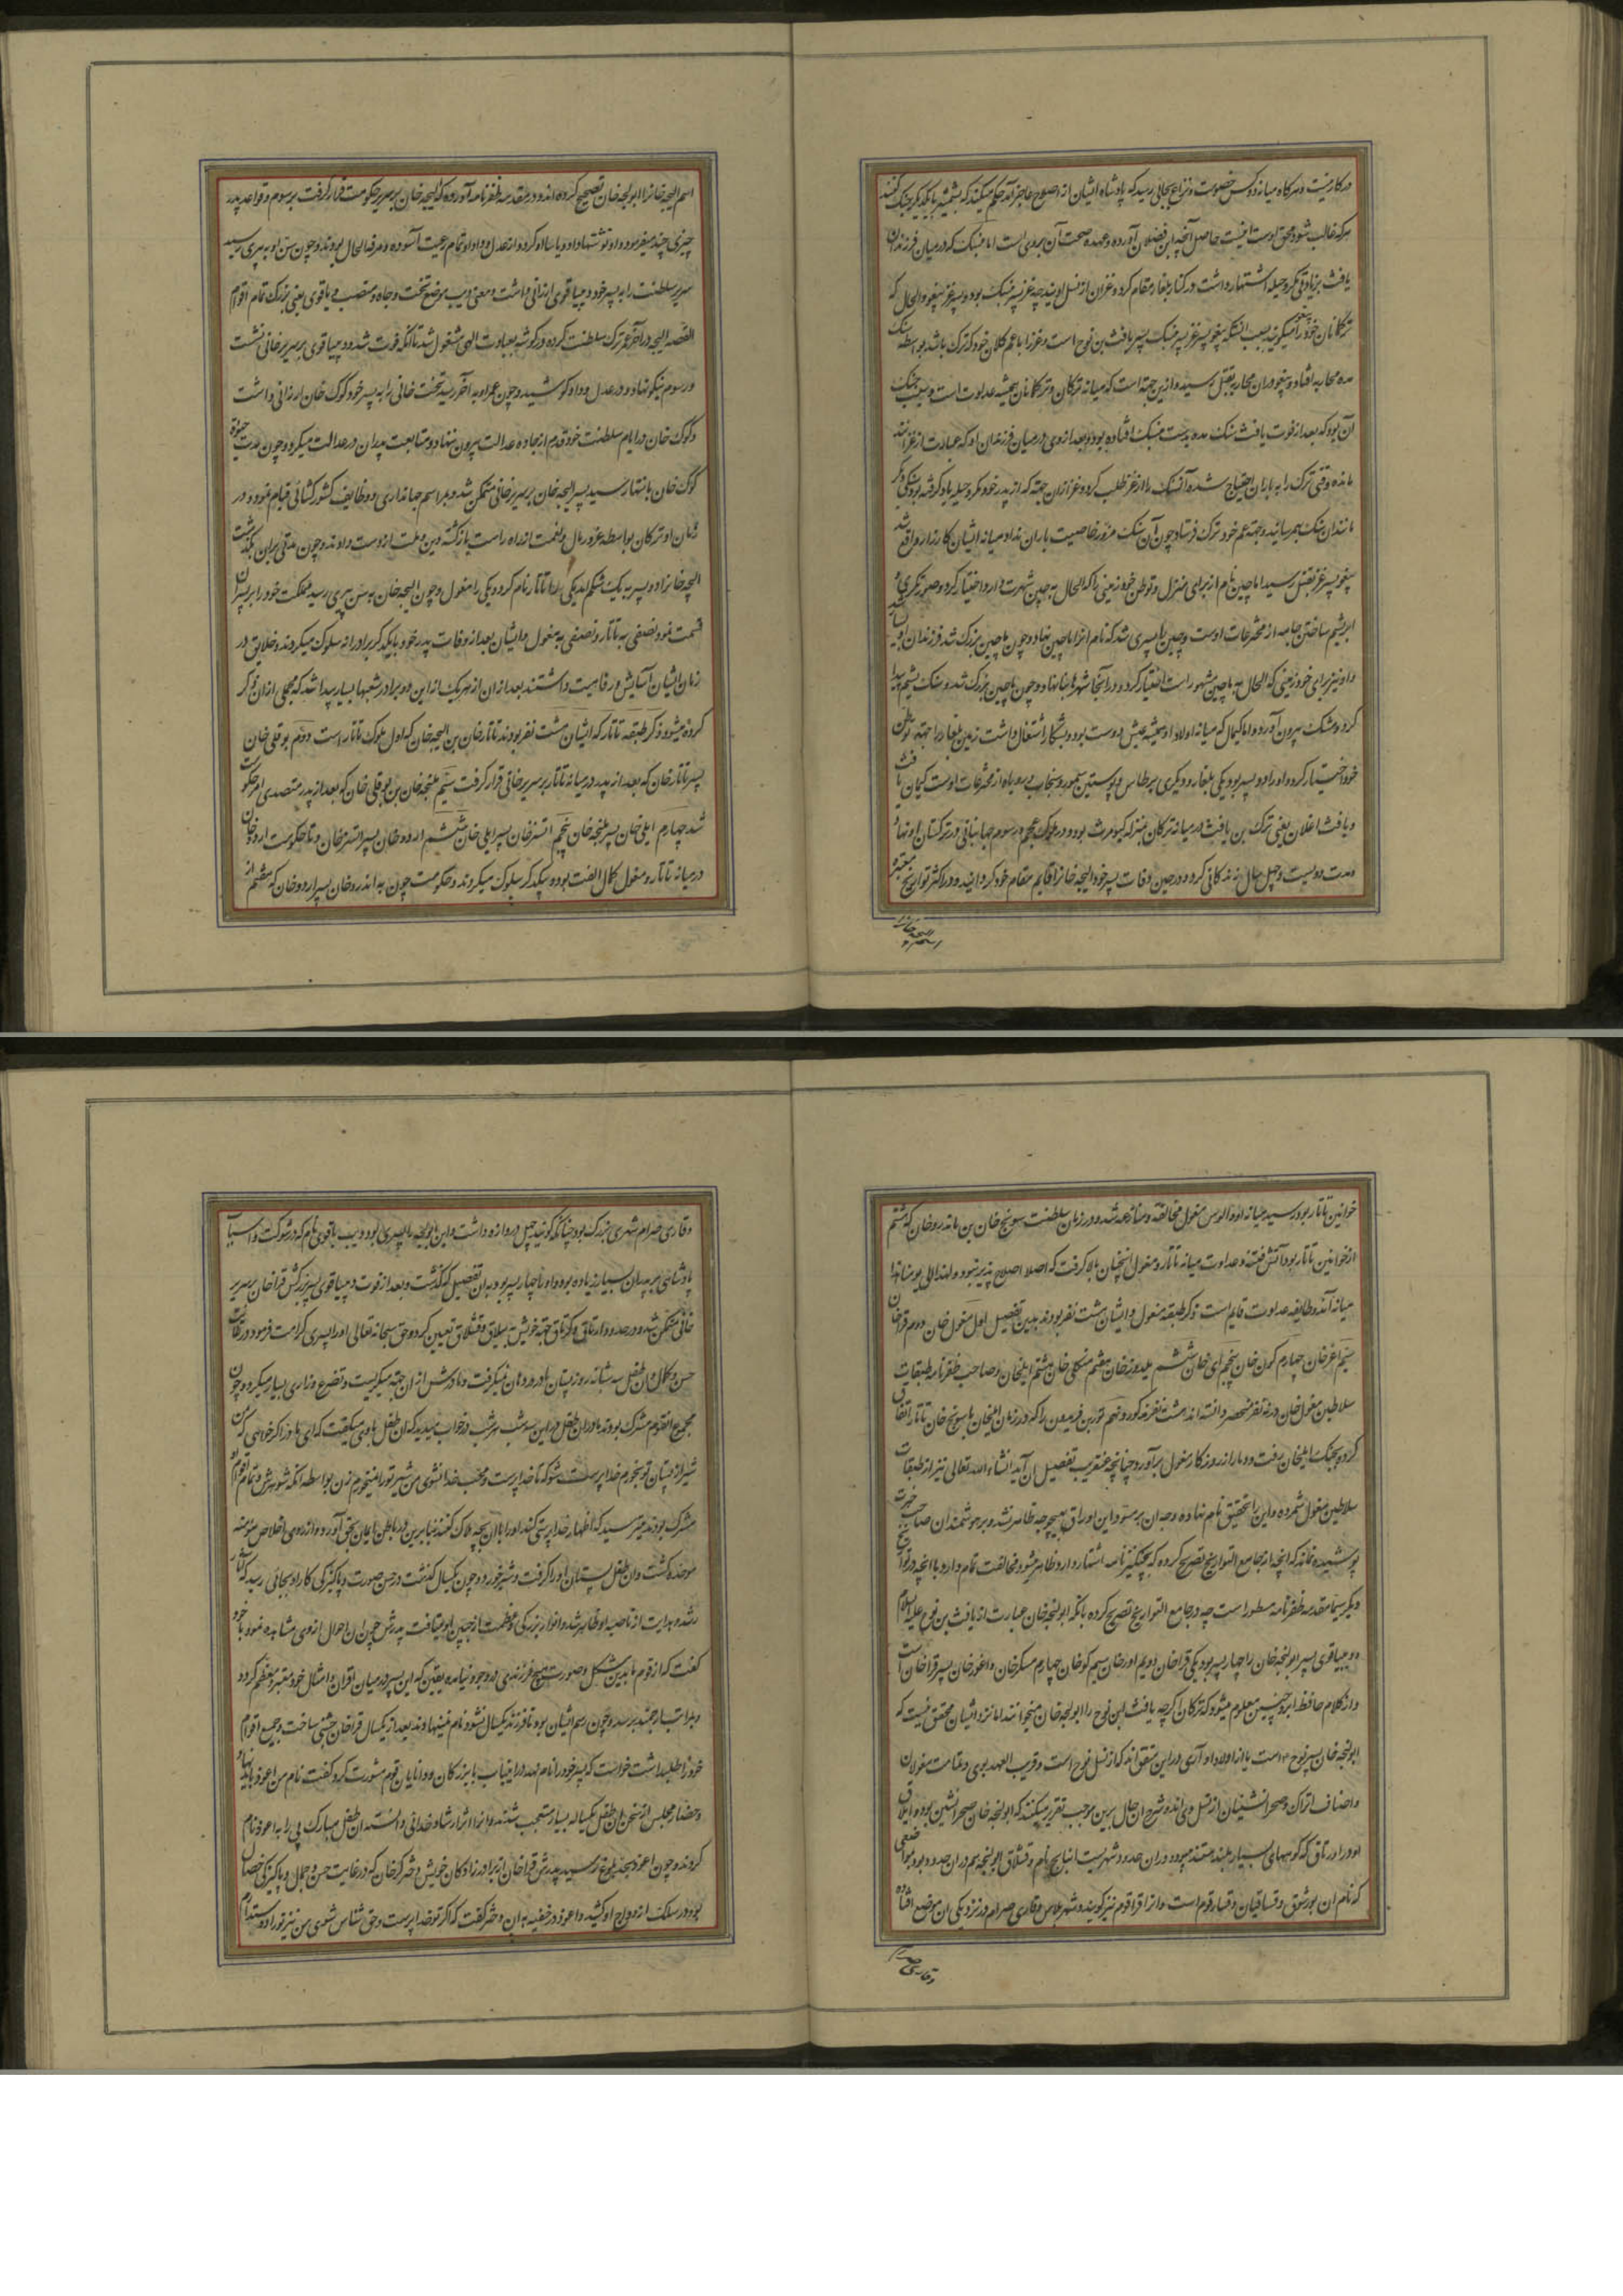 در کار نیست و هر گاه میانه دو کس خصومت و نزاع بجائی رسید که پادشاه ایشان از اصلاح عاجز آمد حکم میکنند که بشمشیر با یکدیگر جنگ کنند
هر که غالب شود محق اوست حاصل آنچه ابن فضلان آورده و عهده صحت آن بروی است اما منسک که در میان فرزندان
یافث بزیادتی مکر و حیله اشتهار داشت در کنار بلغار مقام کرد و غزان از نسل اویند چه غز پسر منسک بود و پسر غز پیغو و الحال که
ترکمانان خود را پیغو میگویند بسبب آنستکه پیغو پسر غز پسر منسک پسر یافث بن نوح است و غز را با عم کلان خود که ترک باشد بواسطه سنک
یده محاربه افتاد و پیغو دران محاربه بقتل رسید و ازین جهة است که میانه ترکان و ترکمانان همیشه عداوت است و سبب جنک
آن بود که بعد از فوت یافث سنک یده بدست منسک افتاده بود و بعد از وی در میان فرزندان او که عبارت از غزانند
مانده وقتی ترک را به باران احتیاج شده آنسنک را از غز طلب کرد و غز از ان جهة که از پدر خود مکر و حیله یاد گرفته بود سنکی دیگر
مانند ان سنک بهم رسانیده جهة عم خود ترک فرستاد چون آن سنک مزور خاصیت باران نداد میانه ایشان کارزار واقع شد
پیغو پسر غز بقتل رسید اما چین نام از برای منزل و توطن خود زمینی را که الحال به چین شهرت دارد اختیار کرد و صورتگری و
ابریشم ساختن جامه از مخترعات اوست و چین را پسری شد که نام او را ماچین نهاد و چون ماچین بزرگ شد فرزندان او بسیار شد
و او نیز برای خود زمینی که الحال به ماچین مشهور است اختیار کرده در آنجا شهرها بنا نهاد و چون ماچین بزرگ شد و سنک یشم پیدا
کرد و مشک بیرون آورد و اما کیمال که میانه اولاد او همیشه عیش دوست بود و بشکار اشتغال داشت زمین بلغار را جهة توطن
خود اختیار کرد و او را دو پسر بود یکی بلغار و دیگری برطاس و پوستین سمور و سنجاب و روباه از مخترعات اوست کیمال بن یافث
و یافث اغلان یعنی ترک بن یافث در میانه ترکان بمنزله کیومرث بود در ملوک عجم و رسوم جهانبانی در ترکستان او نهاد
و مدت دویست و چهل سال زندگانی کرد و در حین وفات پسر خود الیجه خانرا قایم مقام خود گردانید و در اکثر تواریخ معتبره
اسم الیجه خانرا
اسم الیجه خانرا ابولجه خان تصحیح کرده اند و در مقدمه ظفرنامه آورده که الیجه خان بر سریر حکومت قرار گرفت بر رسوم و قواعد پدر
چیزی چند بیفزود و او توشنها و اوویاسا او کرد و از عدل و داد او تمام رعیت آسوده و مرفه الحال بودند و چون سن او به پیری رسید
سریر سلطنت را به پسر خود دیب باقوی ارزانی داشت و معنی دیب موضع تخت و جاه و منصب و باقوی یعنی بزرگ تمام اقوام
القصه الیجه در آخر عمر ترک سلطنت کرده در گوشه بعبادت الهی مشغول شد تا آنکه فوت شد و دیب باقوی بر سریر خانی نشست
و رسوم نیکو نهاد و در عدل و داد کوشید و چون عمر او به آخر رسید تخت خانی را به پسر خود کوک خان ارزانی داشت
و کوک خان در ایام سلطنت خود قدم از جاده عدالت بیرون ننهاد و متابعت پدران در عدالت میکرد و چون مدت حیوة
کوک خان بانتها رسید پسر الیجه خان بر سریر خانی متمکن شد و بمراسم جهانداری و وظایف کشورکشائی قیام نمود و در
زمان او ترکان بواسطه غرور مال و نعمت از راه راست بازگشته دین و ملت از دست دادند و چون مدتی بران بگذشت
الیجه خانرا دو پسر به یک شکم آمد یکی را تاتار نام کرد و یکی را مغول و چون الیجه خان به سن پیری رسید مملکت خود را بر پسران
قسمت نمود نصفی به تاتار و نصفی به مغول و ایشان بعد از وفات پدر خود با یکدگر برادرانه سلوک میکردند و خلایق در
زمان ایشان آسایش و رفاهیت داشتند بعد از ان از هر یک از این دو برادر شعبها بسیار پیدا شد که مجملی از ان ذکر
کرده میشود ذکر طبقه تاتار که ایشان هشت نفر بودند تاتار خان بن الیجه خان که اول ملوک تاتار است دویم بوقلی خان
پسر تاتار خان که بعد از پدر در میانه تاتار بر سریر خانی قرار گرفت سیم یلنجه خان بن بوقلی خان که بعد از پدر متصدی امر حکومت
شد چهارم ایلی خان پسر یلنجه خان پنجم اتسز خان پسر ایلی خان ششم اردو خان پسر اتسز خان و تا حکومت اردو خان
در میانه تاتار و مغول کمال الفت بود و بیکدگر سلوک میکردند و حکومت چون به باندرو خان پسر اردو خان که هفتم از
خوانین تاتار بود رسید میانه او و الوس مغول مخالفة و منازعه شد و در زمان سلطنت سونج خان بن باندرو خان که هشتم
از خوانین تاتار بود آتش فتنه و عداوت میانه تاتار و مغول آنچنان بالا گرفت که اصلا اصلاح پذیر نبود و لهذا الی یومنا هذا
میانه آن دو طایفه عداوت قایم است ذکر طبقه مغول و ایشان هشت نفر بودند بدین تفصیل اول مغول خان دویم قرا خان
سیم اغز خان چهارم کون خان پنجم آی خان ششم یلدوز خان هفتم منکلی خان هشتم ایلخان و صاحب ظفرنامه طبقات
سلاطین مغول خان در نه نفر منحصر دانسته اند هشت نفر مذکور و نهم تور بن فریدون را که در زمان ایلخان با سونج خان تاتار اتفاق
کرده بجنک ایلخان رفت و دمار از روزگار مغول برآورد چنانچه عنقریب تفصیل آن آید انشاء الله تعالی نیز از طبقات
سلاطین مغول شمرده و این را تحقیق نام نهاده و وجه آن بر مسود این اوراق بهیچوجه ظاهر نشد و بر هوشمندان صاحب خبرت
پوشیده نماند که آنچه از جامع التواریخ تصریح کرده که بچنگیزنامه اشتهار دارد ظاهر میشود مخالفت تمام دارد با آنچه در تواریخ
دیگر سیما مقدمه ظفرنامه مسطور است چه در جامع التواریخ تصریح کرده بآنکه ابولجه خان عبارت از یافث بن نوح علیه السلام
و دیب باقوی پسر ابولجه خان را چهار پسر بود یکی قرا خان دویم اور خان سیم کو خان چهارم مسکر خان و اغوز خان پسر قرا خان است
و از کلام حافظ ابرو چنین معلوم میشود که ترکان اگر چه یافث ابن نوح را ابولجه خان میخوانند اما نزد ایشان محقق نیست که
ابولجه خان پسر نوح است یا از اولاد او آری در این متفق اند که از نسل نوح است و قریب العهد بوی و تمامت مغولان
و اصناف اتراک و صحرانشینان از نسل وی اند و شرح آن حال برین موجب تقریر میکنند که ابولجه خان صحرانشین بود و ییلاق
او در ارتاق که کوههای بسیار بلند هستند میبود و دران حدود شهریست اینانج نام و قشلاق ابولجه هم دران حدود بود بموضعی
که نام ان بورسوق و قساقیان و قسار قوم است و انرا قراقوم نیز گویند و شهر تلاس و قاری صرام در نزدیکی آن موضع افتاده
و قاری صرام
و قاری صرام شهری بزرگ بود چنانکه گویند چهل دروازه داشت و این ابولجه را پسری بود دیب باقوی نام که در شوکت و اسباب
پادشاهی بر پدران بسیار زیاده بود و او را چهار پسر بود به ان تفصیل که گذشت و بعد از فوت دیب باقوی پسر بزرگش قرا خان بر سریر
خانی متمکن شد و در حدود ارتاق و کرتاق جهة خویش ییلاق و قشلاق تعیین کرد و حق سبحانه تعالی او را پسری کرامت فرمود در غایت
حسن و کمال و ان طفل سه شبانه روز پستان مادر در دهان نمیگرفت و مادرش از ان جهة میگریست و تضرع و زاری بسیار میکرد و چون
مجموع آنقوم مشرک بودند مادر ان طفل در این سه شب هر شب در خواب میدید که ان طفل با وی میگفت که ای مادر اگر خواهی که من
شیر از پستان تو بخورم خداپرست شو که تا خداپرست و محب خدا نشوی من شیر تو را نمیخورم زن بواسطه آنکه شوهرش و تمام اقوام او
مشرک بودند میترسید که اظهار خداپرستی کند او را با آن بچه هلاک کنند بنابرین در باطن ایمان بحق آورد و از روی اخلاص مؤمنه
موحده گشت و ان طفل پستان او را گرفت و شیر خورد و چون یکسال گذشت در حسن صورت و پاکیزگی کار او بجائی رسید که آثار
رشد و هدایت از ناصیه او ظاهر شد و انوار بزرگی و عظمت از جبین او میتافت پدرش چون ان احوال از وی مشاهده نمود با خود
گفت که از قوم ما بدین شکل و صورت هیچ فرزندی بوجود نیامده یقین که این پسر در میان اقران و امثال خود معتبر و معظم گردد
و بمراتب ارجمند برسد و چون رسم ایشان بود تا فرزند یکسال نشود نام نمینهادند بعد از یکسال قرا خان جشنی ساخت و جمیع اقوام
خود را طلب داشت خواست که پسر خود را نام نهد در این باب با بزرگان و دانایان قوم مشورت کرد گفت نام من اغوز باید نهاد
و حضار مجلس از سخن ان طفل یکساله بسیار متعجب شدند و انرا آثار ارشاد خدائی دانسته ان طفل مبارک پی را به اغوز نام
کردند و چون اغوز بحد بلوغ رسید پدرش قرا خان از برادرزادگان خویش دختر کر خان که در غایت حسن و جمال و پاکیزگی خصال
بود در سلک ازدواج او کشید و اغوز در خفیه به ان دختر گفت که اگر تو خداپرست و حق شناس شوی من نیز تو را دوست دارم